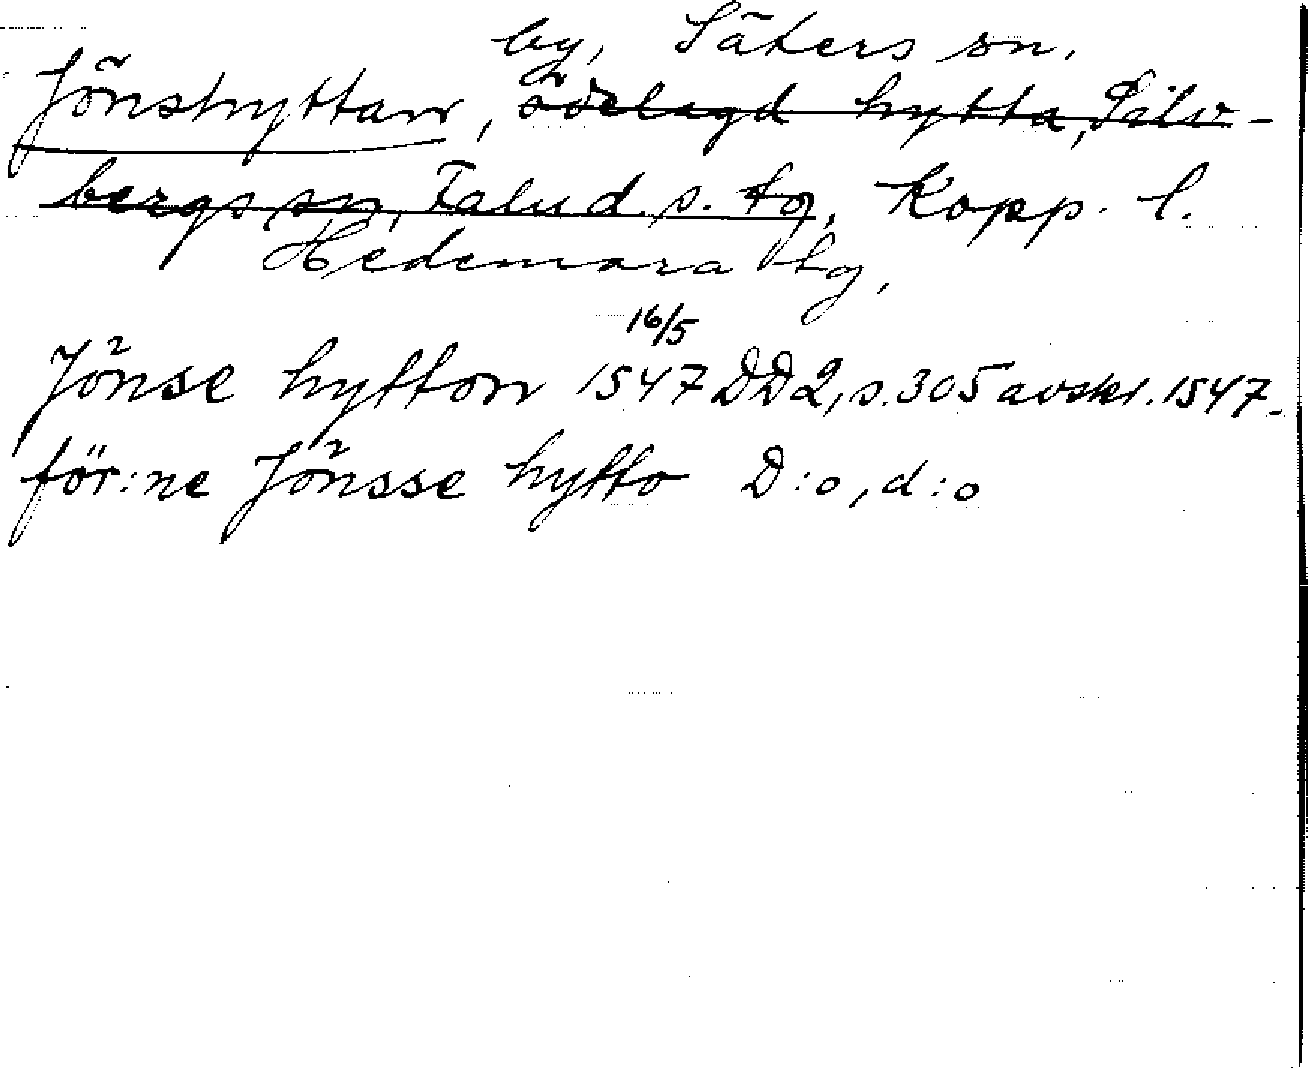 by, Säters sn.
Jönshyttan, ödelagd hytta, Silv-
bergs sn, Falu d. s. tg, Kopp. l.
Hedemora tg,
16/5
Jönse hytton 1547 DD2, s. 305 avskr. 1547.
för:ne Jönsse hytto D:o, d:o